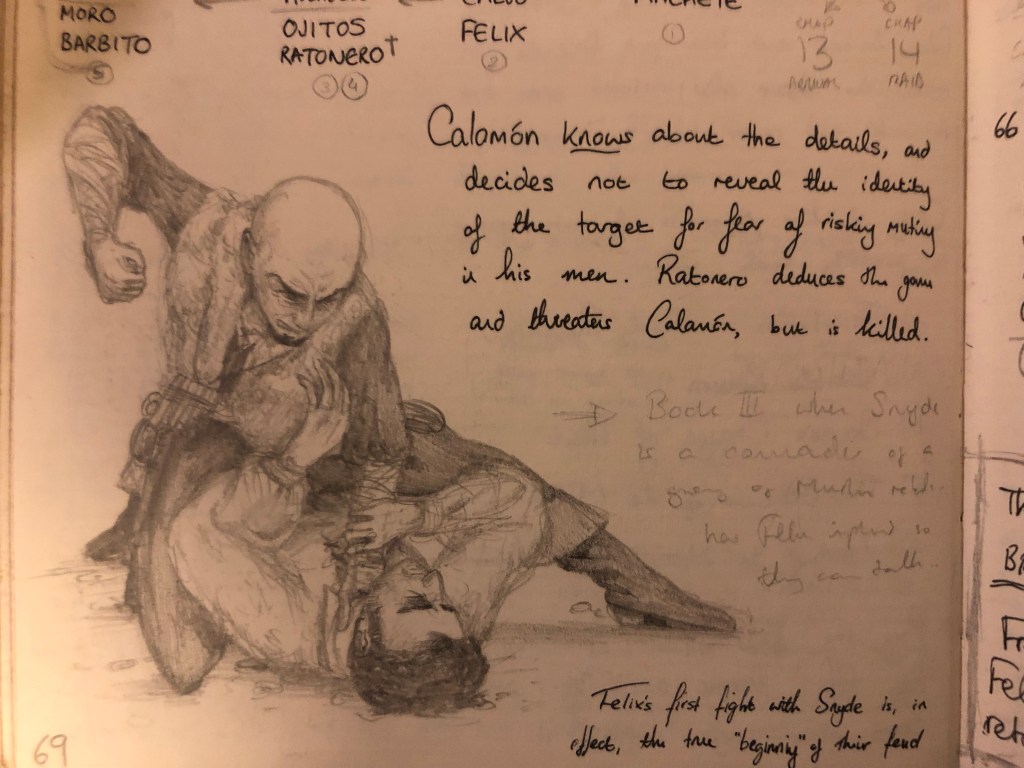 MORO
BARBITO
5
OJITOS
RATONERO†
3 4
FELIX
2
1
CHAP CHAP
13 14
ARRIVAL RAID
Calamón knows about the details, and
decides not to reveal the identity
of the target for fear of risking mutiny
in his men. Ratonero deduces the
and threatens Calamón, but is killed.
→ Book III when Snyde
is a comrade of a
of Muslim
has Felix so
they can talk..
Felix's first fight with Snyde is, in
effect, the true "beginning" of their feud
69
66